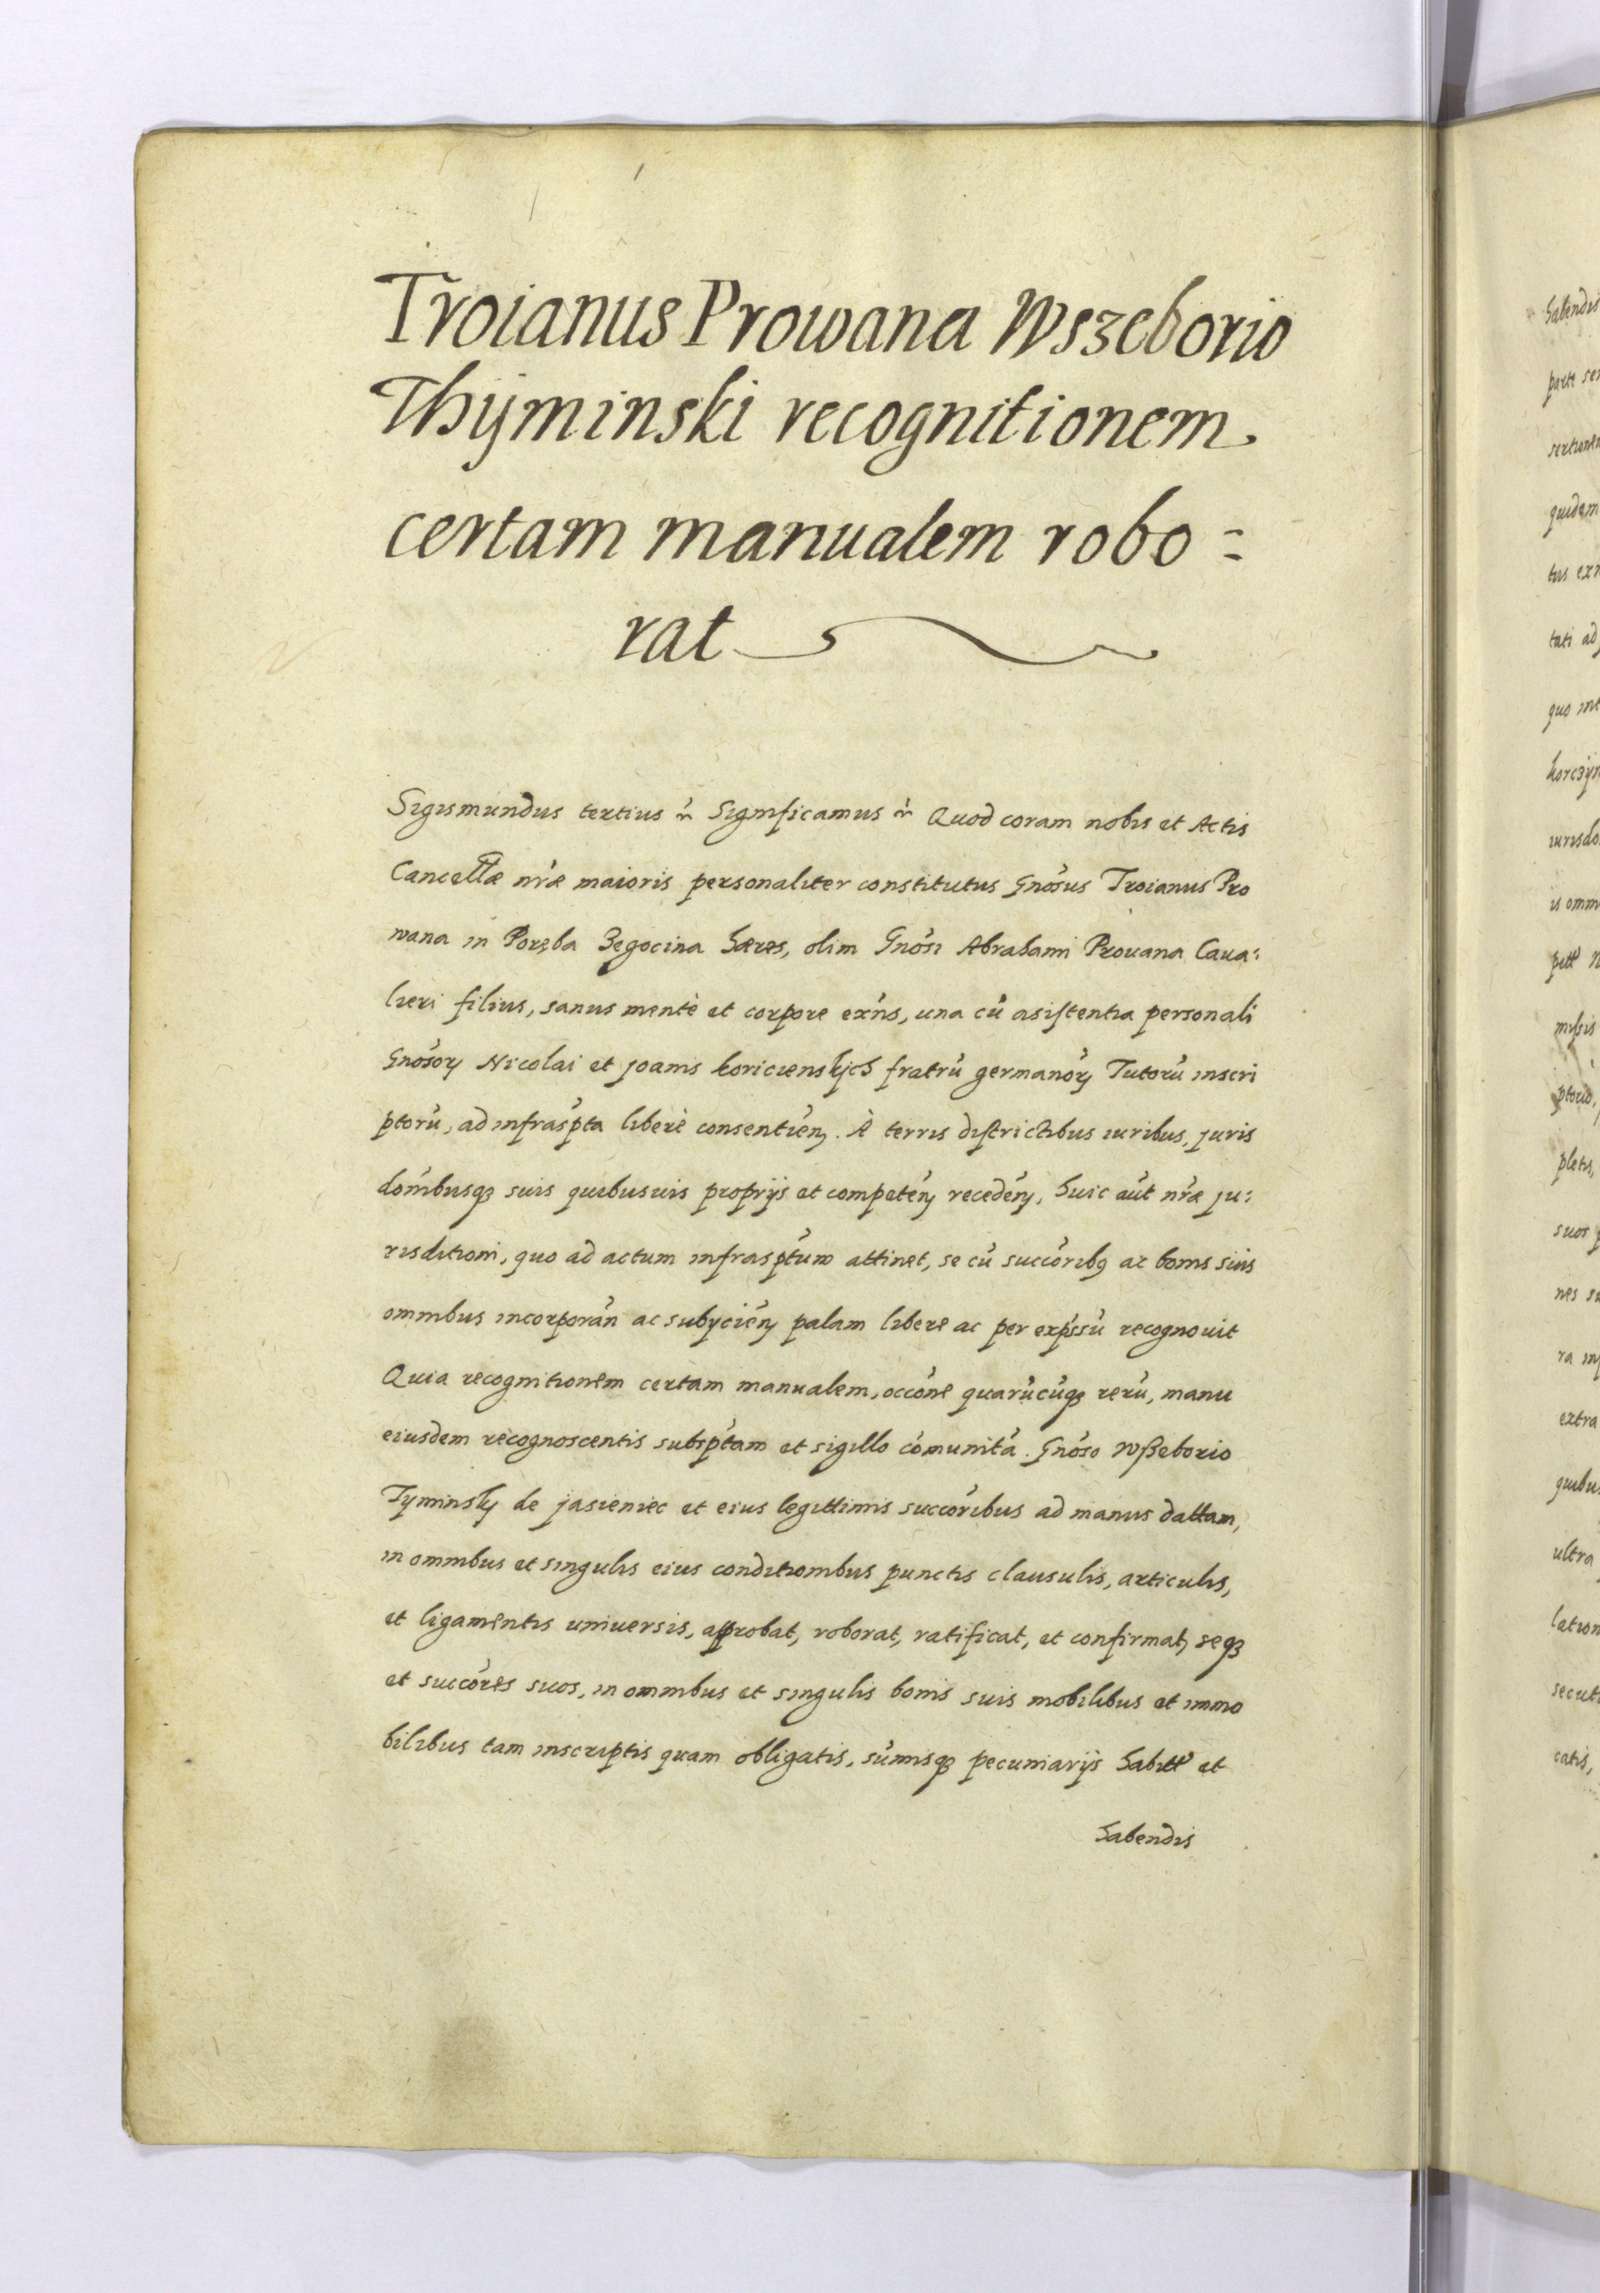 Troianus Prowana Wszeborio
Thyminski recognitionem
certam manualem robo=
rat
Sigismundus tertius Significamus Quod coram nobis et Actis
Cancellæ nr̃æ maioris personaliter constitutus Gnõsus Troianus Pro
wana in Poręba Zegocina hæres, olim Gnõsi Abrahami Prouana Caua:
lieri filius, sanus mente et corpore exñs, una cũ asistentia personali
Gnõsorȝ Nicolai et Joanis koricienskych fratrũ germanorȝ Tutorũ inscri
ptorũ, ad infrasp̃ta liberè consentieñ. À terris districtibus iuribus, juris
doñibusqȝ suis quibusuis proprijs et competeñ recedeñ, huic aũt nr̃æ ju:
risditioni, quo ad actum infrasp̃tum attinet, se cũ succõribȝ ac bonis suis
omnibus incorporañ ac subycieñ palam libere ac per exp̃ssũ recognouit
Quia recognitionem certam manualem, occõne quarũcũqȝ rerũ, manu
eiusdem recognoscentis subsp̃tam et sigillo cõmunitã. Gnõso Wßeborio
Tyminsky de Jasieniec et eius legittimis succõribus ad manus dattam,
in omnibus et singulis eius conditionibus punctis clausulis, articulis,
et ligamentis uniuersis, approbat, roborat, ratificat, et confirmat, seqȝ
et succõres suos, in omnibus et singulis bonis suis mobilibus et immo
bilibus tam inscriptis quam obligatis, sũmisqȝ pecuniarijs habitt̃ et
habendis
habendis
quidem
extra
ultra
catis,